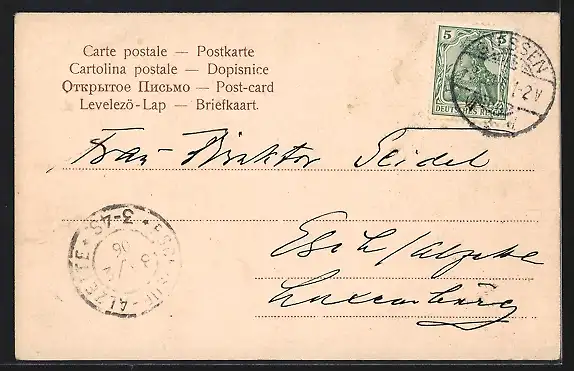 Carte postale — Postkarte
Cartolina postale — Dopisnice
Открытое Письмо — Post-card
Levelező-Lap — Briefkaart.
5
DEUTSCHES REICH
GIESSEN
1-2 V
Frau Direktor Seidel
Esch /Alzette
Luxemburg
3-4S
06
ESCH-SUR-ALZETTE